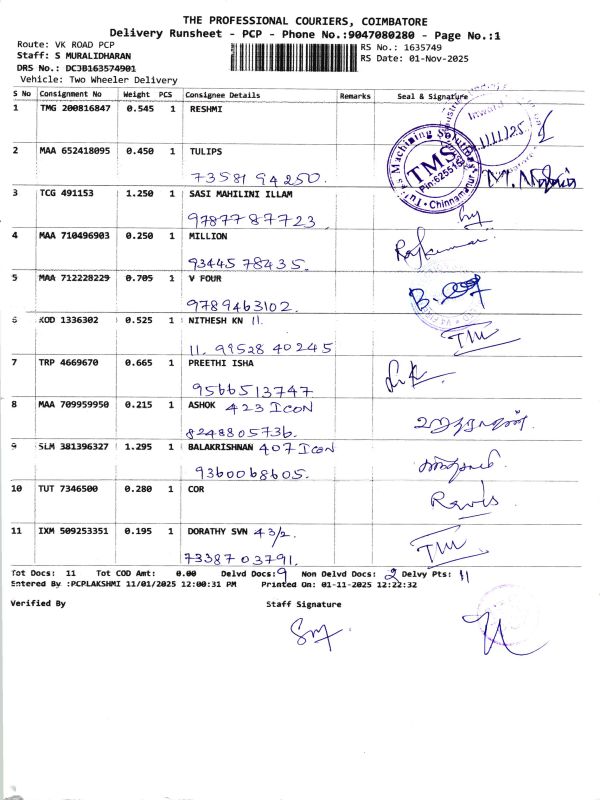 THE PROFESSIONAL COURIERS, COIMBATORE
Delivery Runsheet - PCP - Phone No.:9047080280 - Page No.:1
Route: VK ROAD PCP
RS No.: 1635749
Staff: S MURALIDHARAN
RS Date: 01-Nov-2025
DRS No.: DCJB163574901
Vehicle: Two Wheeler Delivery
S No Consignment No Weight PCS Consignee Details Remarks Seal & Signature
1 TMG 200816847 0.545 1 RESHMI
Inward
1/11/25
2 MAA 652418095 0.450 1 TULIPS
73581 94250.
Machining Solutions
TMS
Chinnamanur
3 TCG 491153 1.250 1 SASI MAHILINI ILLAM
97877 87723
4 MAA 710496903 0.250 1 MILLION
Rajkumar.
93445 78435.
5 MAA 712228229 0.705 1 V FOUR
9789463102.
6 KOD 1336302 0.525 1 NITHESH KN 11.
11. 99528 40245
7 TRP 4669670 0.665 1 PREETHI ISHA
9566513747
8 MAA 709959950 0.215 1 ASHOK 423 ICON
8248805736.
9 SLM 381396327 1.295 1 BALAKRISHNAN 407 ICON
9360068605.
10 TUT 7346500 0.280 1 COR
11 IXM 509253351 0.195 1 DORATHY SVN 43/2.
73387 03791.
Tot Docs: 11 Tot COD Amt: 0.00 Delvd Docs: 9 Non Delvd Docs: 2 Delvy Pts: 11
Entered By :PCPLAKSHMI 11/01/2025 12:00:31 PM Printed On: 01-11-2025 12:22:32
Verified By Staff Signature